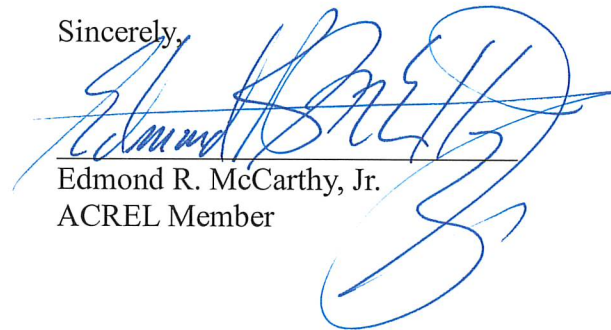 Sincerely,
Edmond
Edmond R. McCarthy, Jr.
ACREL Member